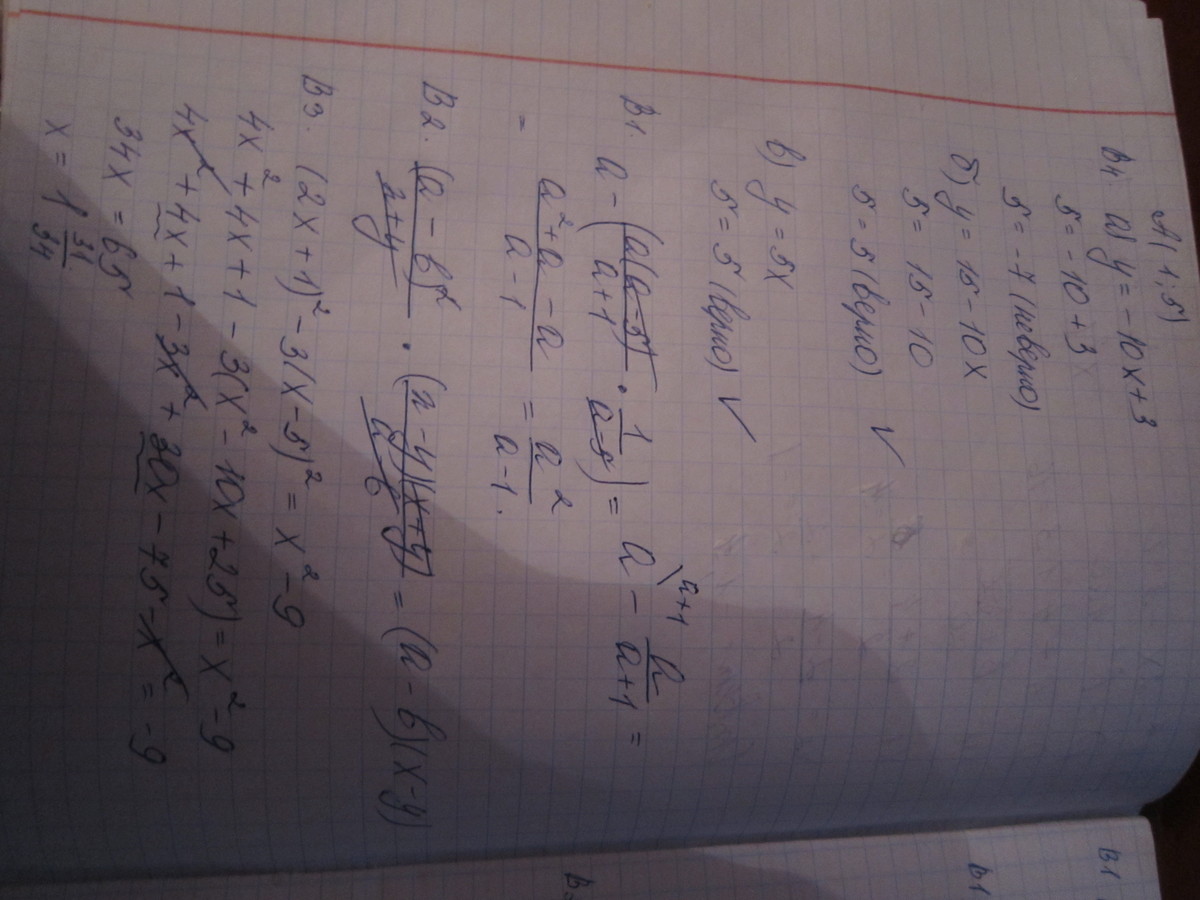 A(1;5)
В4. а) y = -10x+3
5 = -10+3
5 = -7 (неверно)
б) y = 15 - 10x
5 = 15 - 10
5 = 5 (верно) ✓
в) y = 5x
5 = 5 (верно) ✓
В1. a - (a(a-5)/(a+1) · 1/(a-5)) = a\a+1 - a/(a+1) =
= (a²+a-a)/(a-1) = a²/(a-1).
В2. (a-b)²/(x+y) · (x-y)(x+y)/(a-b) = (a-b)(x-y)
В3. (2x+1)² - 3(x-5)² = x² - 9
4x² + 4x + 1 - 3(x² - 10x + 25) = x² - 9
4x² + 4x + 1 - 3x² + 30x - 75 - x² = -9
34x = 65
x = 1 31/34
В1
В1
В